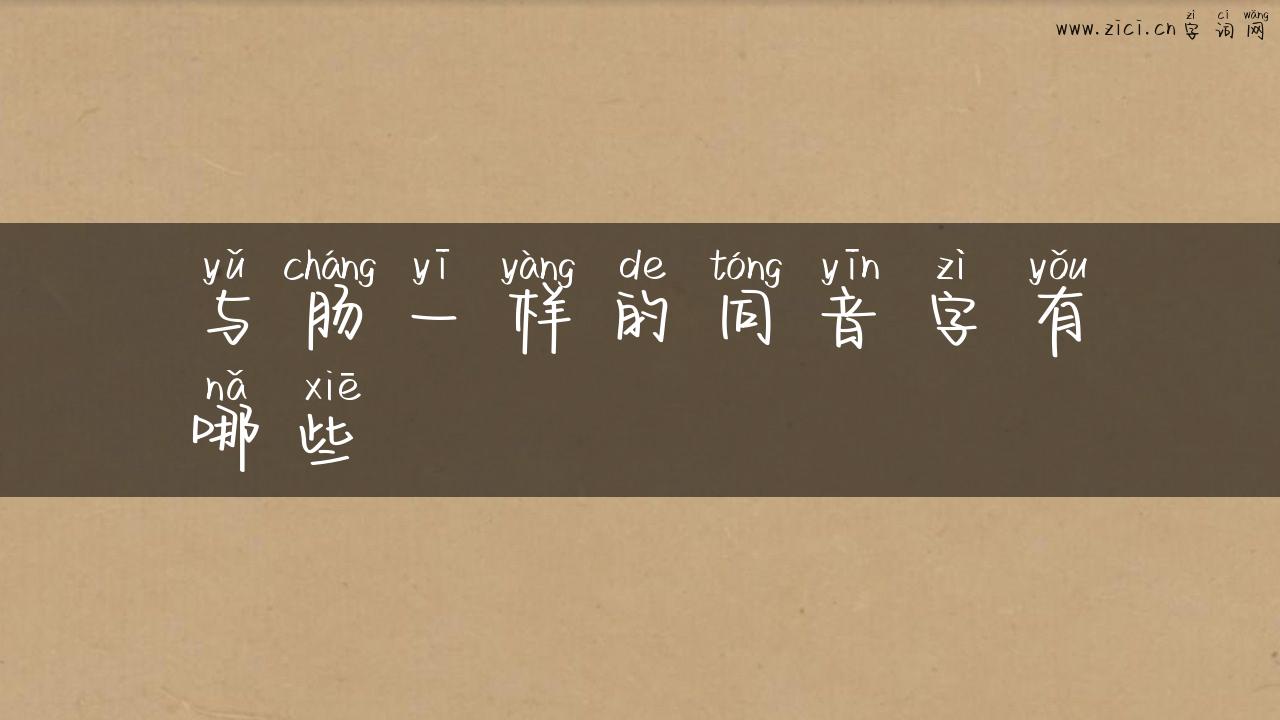 zì cí wǎng
www.zici.cn 字 词 网
yǔ cháng yī yàng de tóng yīn zì yǒu
与 肠 一 样 的 同 音 字 有
nǎ xiē
哪 些